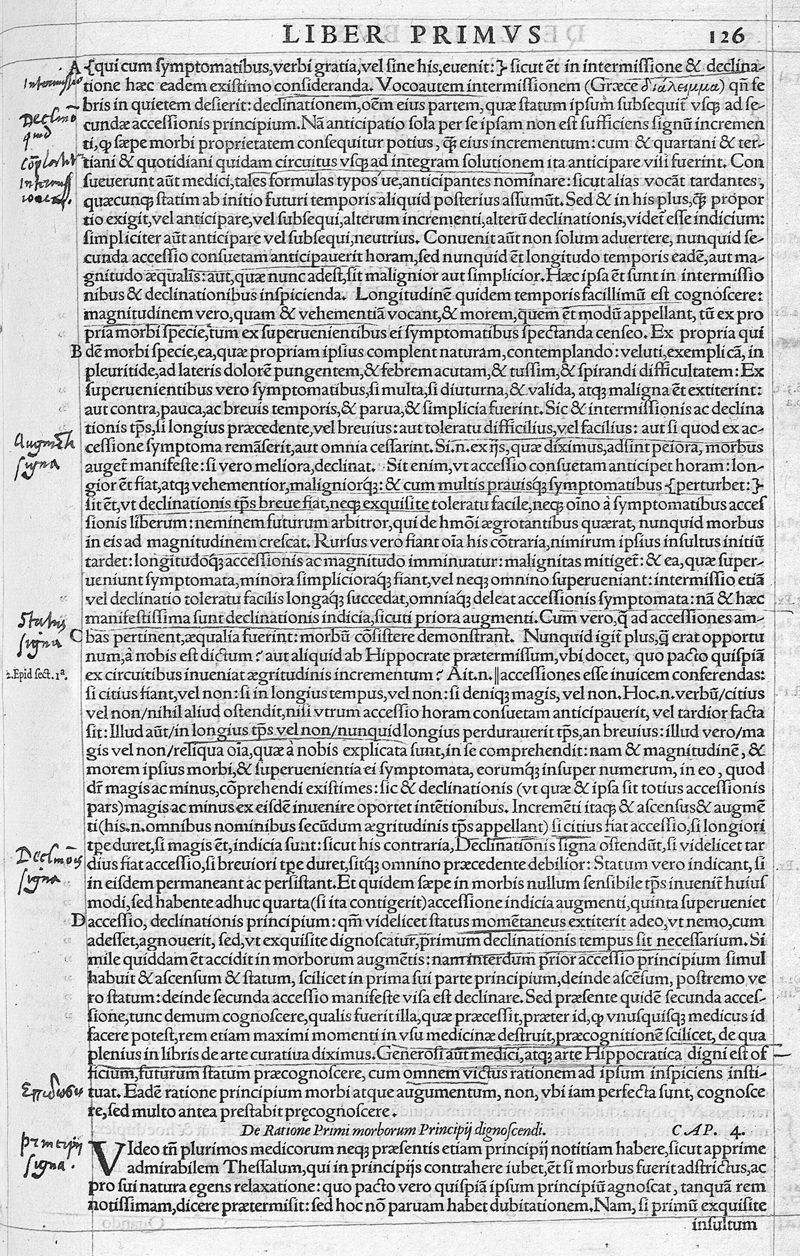 LIBER PRIMVS 126
A {qui cum symptomatibus, verbi gratia, vel sine his, euenit:} sicut ēt in intermissione & declina-
Intermissio
tione hæc eadem existimo consideranda. Vocoautem intermissionem (Græce διάλειμμα) qñ fe
bris in quietem desierit: declinationem, oēm eius partem, quæ statum ipsum subsequit̃ vsq; ad se-
cundæ accessionis principium. Nā anticipatio sola per se ipsam non est sufficiens signũ incremen
ti, ꝙ sæpe morbi proprietatem consequitur potius, ꝗ̃ eius incrementum: cum & quartani & ter-
tiani & quotidiani quidam circuitus vsq; ad integram solutionem ita anticipare visi fuerint. Con
sueuerunt aũt medici, tales formulas typos ue, anticipantes nominare: sicut alias vocāt tardantes,
quæcunq; statim ab initio futuri temporis aliquid posterius assumũt. Sed & in his plus, ꝗ̃ propor
tio exigit, vel anticipare, vel subsequi, alterum incrementi, alterũ declinationis, videt̃ esse indicium:
simpliciter aũt anticipare vel subsequi, neutrius. Conuenit aũt non solum aduertere, nunquid se-
cunda accessio consuetam anticipauerit horam, sed nunquid ēt longitudo temporis eadē, aut ma-
gnitudo æqualis: aut, quæ nunc adest, sit malignior aut simplicior. Hæc ipsa ēt sunt in intermissio
nibus & declinationibus inspicienda. Longitudinē quidem temporis facillimũ est cognoscere:
magnitudinem vero, quam & vehementiā vocant, & morem, quem ēt modũ appellant, tũ ex pro
pria morbi specie, tum ex superuenientibus ei symptomatibus spectanda censeo. Ex propria qui
B dē morbi specie, ea, quæ propriam ipsius complent naturam, contemplando: veluti, exempli cā, in
pleuritide, ad lateris dolorē pungentem, & febrem acutam, & tussim, & spirandi difficultatem: Ex
superuenientibus vero symptomatibus, si multa, si diuturna, & valida, atq; maligna ēt extiterint:
aut contra, pauca, ac breuis temporis, & parua, & simplicia fuerint. Sic & intermissionis ac declina
tionis tp̄s, si longius præcedente, vel breuius: aut toleratu difficilius, vel facilius: aut si quod ex ac-
cessione symptoma remāserit, aut omnia cessarint. Si.n. ex ijs, quæ diximus, adsint peiora, morbus
signa
auget̃ manifeste: si vero meliora, declinat. Sit enim, vt accessio consuetam anticipet horam: lon-
gior ēt fiat, atq; vehementior, maligniorq;: & cum multis prauisq; symptomatibus {perturbet:}
sit ēt, vt declinationis tp̄s breue fiat, neq; exquisite toleratu facile, neq; oīno à symptomatibus acces
sionis liberum: neminem futurum arbitror, qui de hmōi ægrotantibus quærat, nunquid morbus
in eis ad magnitudinem crescat. Rursus vero fiant oīa his cōtraria, nimirum ipsius insultus initiũ
tardet: longitudoq; accessionis ac magnitudo imminuatur: malignitas mitiget̃: & ea, quæ super-
ueniunt symptomata, minora simplicioraq; fiant, vel neq; omnino superueniant: intermissio etiā
vel declinatio toleratu facilis longaq; succedat, omniaq; deleat accessionis symptomata: nā & hæc
manifestissima sunt declinationis indicia, sicuti priora augmenti. Cum vero, q̄ ad accessiones am-
Status
signa
C bas pertinent, æqualia fuerint: morbũ cōsistere demonstrant. Nunquid igit̃ plus, q̃ erat opportu
num, à nobis est dictum? aut aliquid ab Hippocrate prætermissum, vbi docet, quo pacto quispiā
2. Epid sect. 1ᵃ.
ex circuitibus inueniat ægritudinis incrementum? Ait.n. ‖accessiones esse inuicem conferendas:
si citius fiant, vel non: si in longius tempus, vel non: si deniq; magis, vel non. Hoc.n. verbũ/citius
vel non/nihil aliud ostendit, nisi vtrum accessio horam consuetam anticipauerit, vel tardior facta
sit: Illud aũt/in longius tp̄s vel non/nunquid longius perdurauerit tp̄s, an breuius: illud vero/ma
gis vel non/reliqua oīa, quæ à nobis explicata sunt, in se comprehendit: nam & magnitudinē, &
morem ipsius morbi, & superuenientia ei symptomata, eorumq; insuper numerum, in eo, quod
dr̃ magis ac minus, cōprehendi existimes: sic & declinationis (vt quæ & ipsa sit totius accessionis
pars) magis ac minus ex eisdē inuenire oportet intētionibus. Incremēti itaq; & ascensus & augmē
ti (his.n. omnibus nominibus secũdum ægritudinis tp̄s appellant) si citius fiat accessio, si longiori
tp̄e duret, si magis ēt, indicia sunt: sicut his contraria, Declinationis signa ostendũt, si videlicet tar
signa
dius fiat accessio, si breuiori tp̄e duret, sitq; omnino præcedente debilior: Statum vero indicant, si
in eisdem permaneant ac persistant. Et quidem sæpe in morbis nullum sensibile tp̄s inuenit̃ huius
modi, sed habente adhuc quarta (si ita contigerit) accessione indicia augmenti, quinta superueniet
D accessio, declinationis principium: qm̄ videlicet status momētaneus extiterit adeo, vt nemo, cum
adesset, agnouerit, sed, vt exquisite dignoscatur, primum declinationis tempus sit necessarium. Si
mile quiddam ēt accidit in morborum augmētis: nam interdum prior accessio principium simul
habuit & ascensum & statum, scilicet in prima sui parte principium, deinde ascēsum, postremo ve
ro statum: deinde secunda accessio manifeste visa est declinare. Sed præsente quidē secunda acces-
sione, tunc demum cognoscere, qualis fuerit illa, quæ præcessit, præter id, ꝙ vnusquisq; medicus id
facere potest, rem etiam maximi momenti in vsu medicinæ destruit, præcognitionē scilicet, de qua
plenius in libris de arte curatiua diximus. Generosi aũt medici, atq; arte Hippocratica digni est of
ficium, futurum statum præcognoscere, cum omnem victus rationem ad ipsum inspiciens insti-
tuat. Eadē ratione principium morbi atque augumentum, non, vbi iam perfecta sunt, cognosce
re, sed multo antea prestabit pręcognoscere.
De Ratione Primi morborum Principij dignoscendi. CAP. 4.
principij
signa.
VIdeo tñ plurimos medicorum neq; præsentis etiam principij notitiam habere, sicut apprime
admirabilem Thessalum, qui in principijs contrahere iubet, ēt si morbus fuerit adstrictus, ac
pro sui natura egens relaxatione: quo pacto vero quispiā ipsum principiũ agnoscat, tanquā rem
notissimam, dicere prætermisit: sed hoc nō paruam habet dubitationem. Nam, si primũ exquisite
insultum